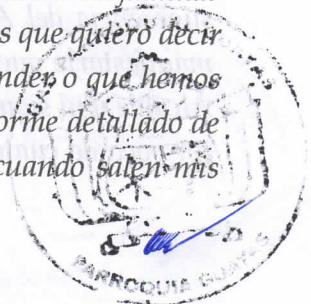 s que quiero decir
ender, o que hemos
orme detallado de
cuando salen mis
PARROQUIA